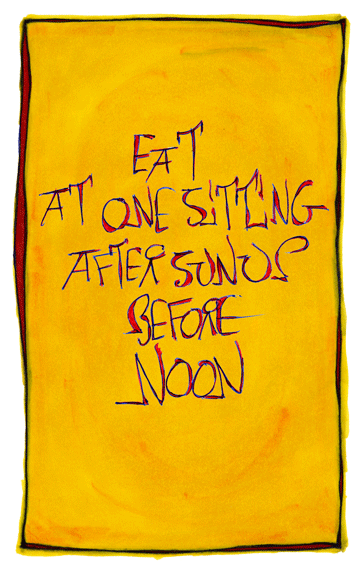 EAT
AT ONE SITTING
AFTER SUNUP
BEFORE
NOON